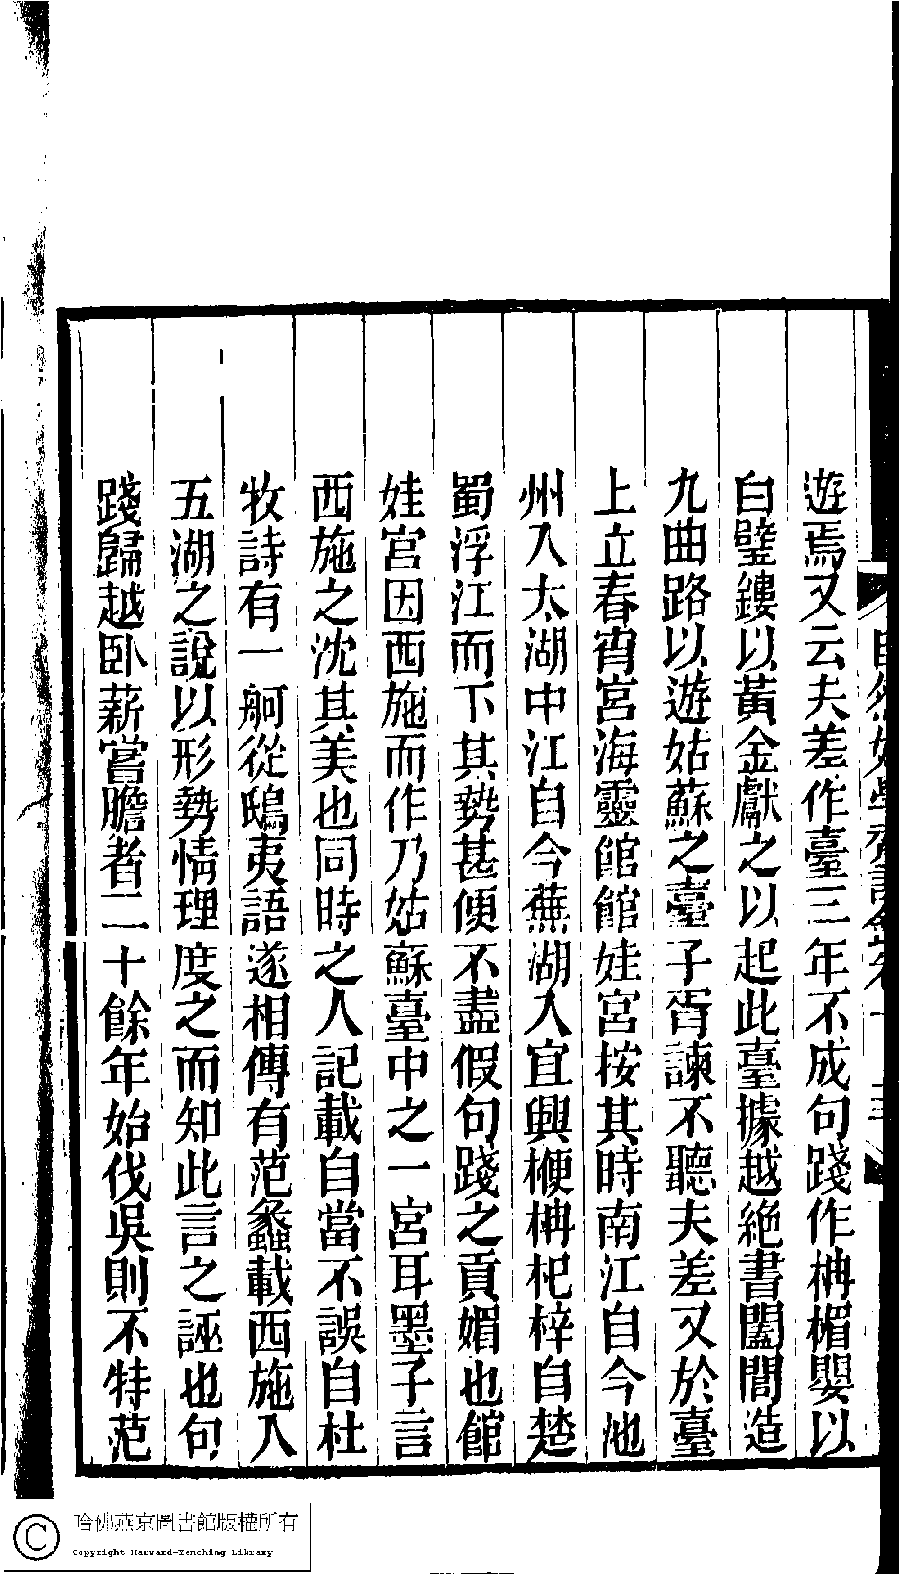 遊焉又云夫差作臺三年不成句踐作柟楣嬰以
白璧鏤以黃金獻之以起此臺據越絕書闔閭造
九曲路以遊姑蘇之臺子胥諫不聽夫差又於臺
上立春宵宮海靈館館娃宮按其時南江自今池
州入太湖中江自今蕪湖入宜興楩柟杞梓自楚
蜀浮江而下其勢甚便不盡假句踐之貢媚也館
娃宮因西施而作乃姑蘇臺中之一宮耳墨子言
西施之沈其美也同時之人記載自當不誤自杜
牧詩有一舸從鴟夷語遂相傳有范蠡載西施入
五湖之說以形勢情理度之而知此言之誣也句
踐歸越卧薪嘗膽者二十餘年始伐吳則不特范
哈佛燕京圖書館版權所有
Copyright Harvard-Yenching Library